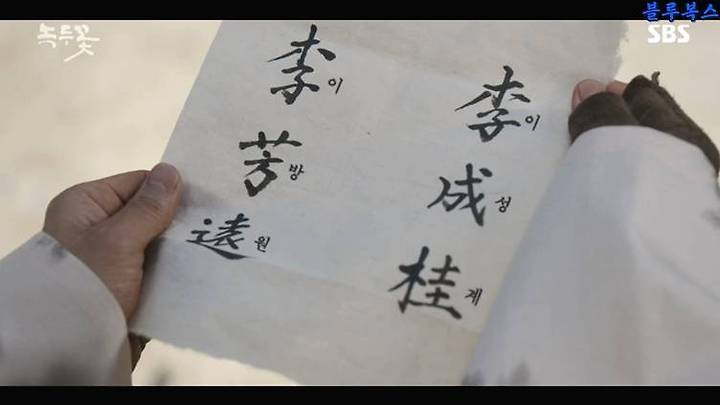 블루복스
녹두꽃
SBS
李이
成성
桂계
李이
芳방
遠원